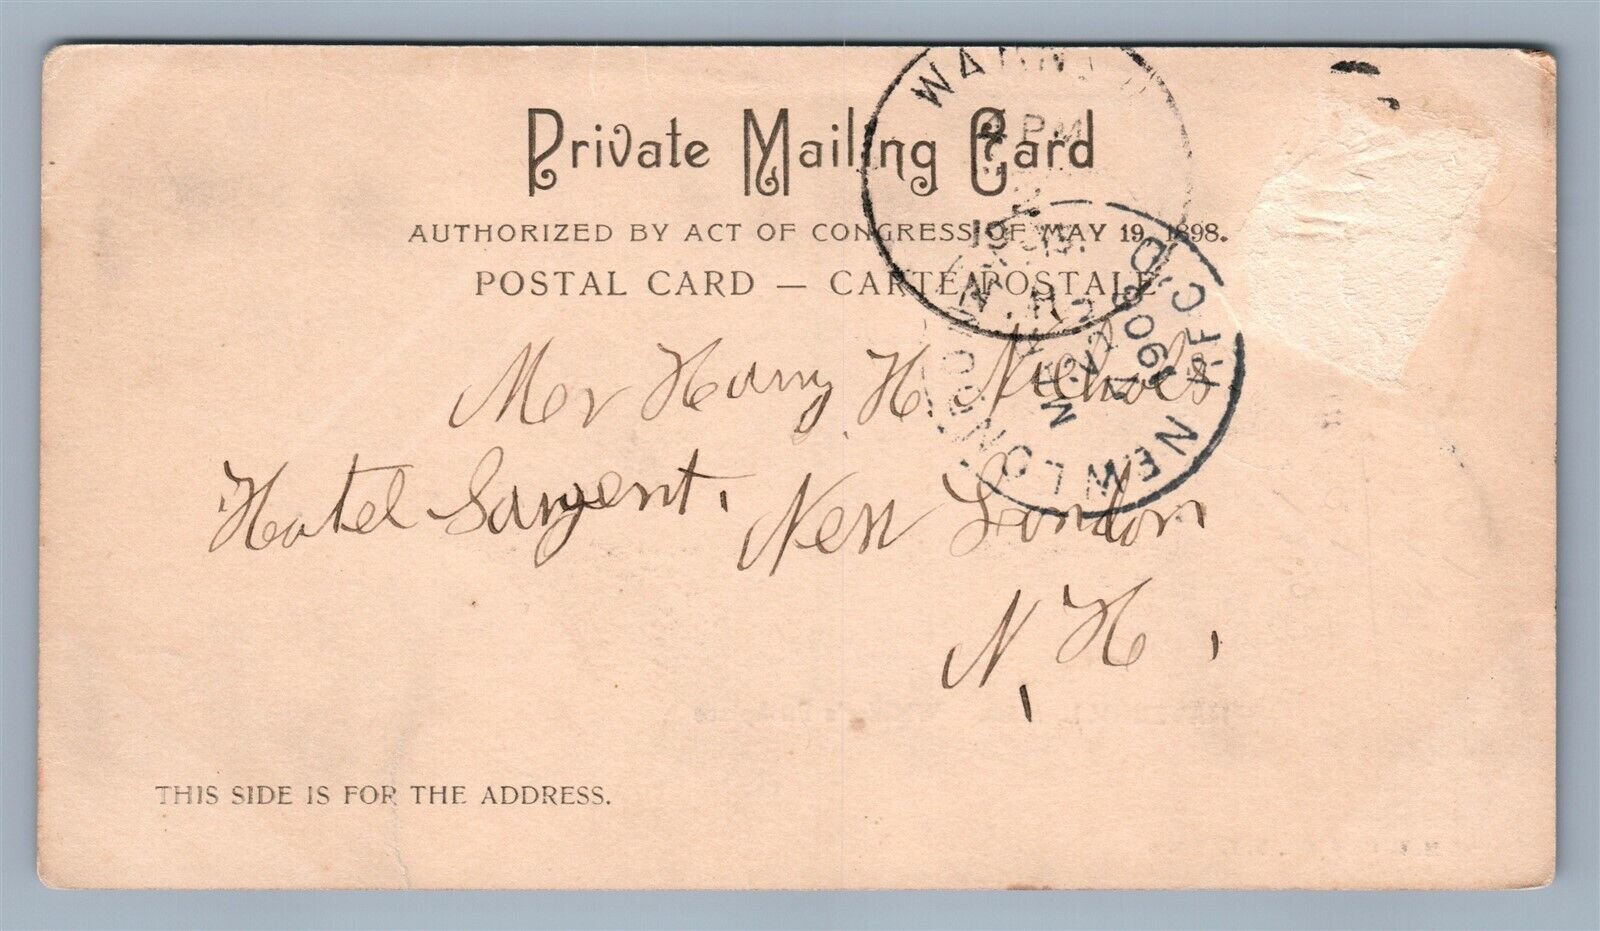 Private Mailing Card
AUTHORIZED BY ACT OF CONGRESS OF MAY 19, 1898.
POSTAL CARD — CARTE POSTALE
PM
NEW LONDON
REC'D
1906
Mr Harry H. Nichols
Hotel Sargent.
New London
N. H.
THIS SIDE IS FOR THE ADDRESS.